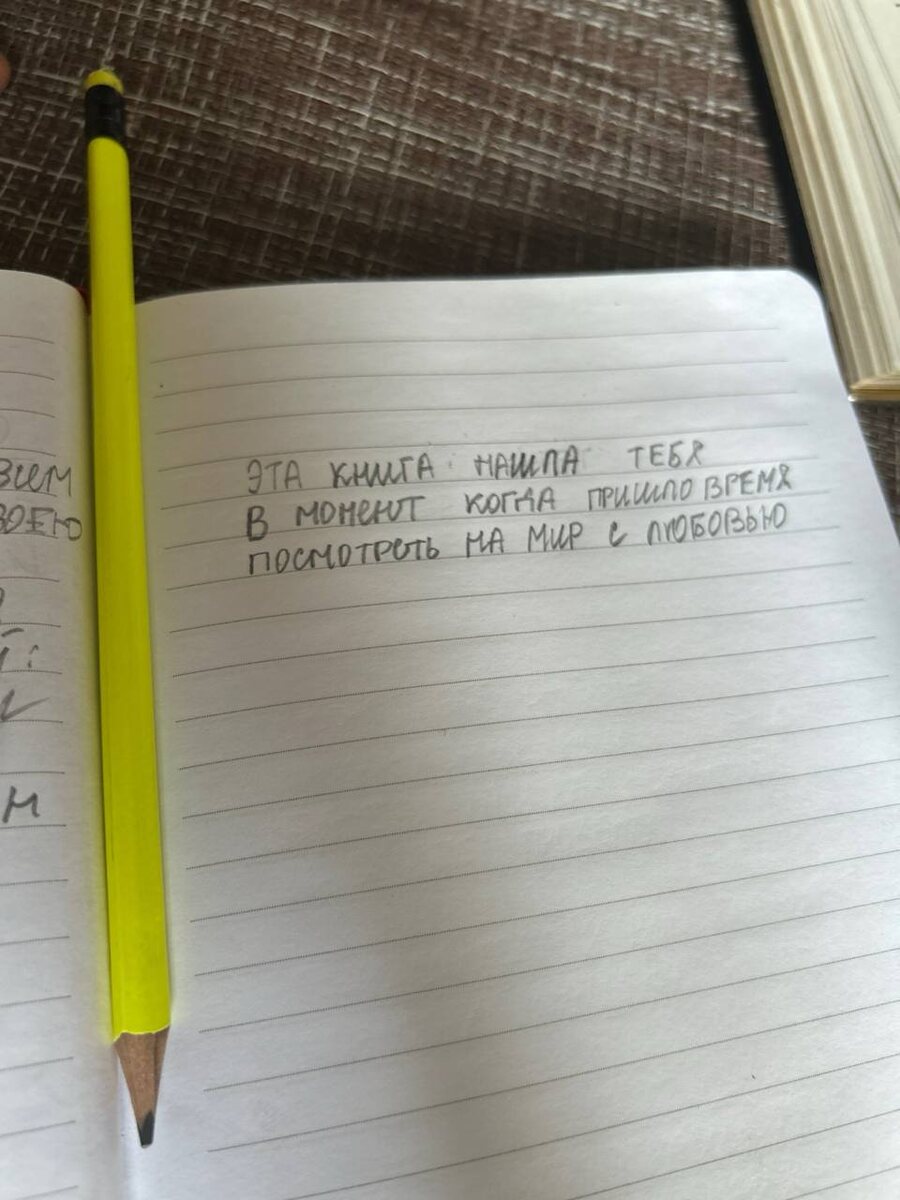 ВСЕМ
ЭТА КНИГА НАШЛА ТЕБЯ
В МОМЕНТ КОГДА ПРИШЛО ВРЕМЯ
ПОСМОТРЕТЬ НА МИР С ЛЮБОВЬЮ